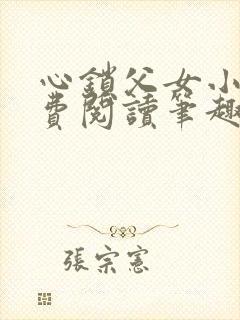 心鎖父女小
費閱讀筆趣
張宗憲